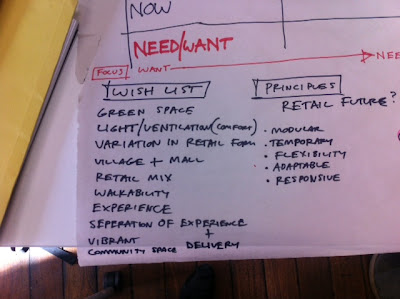 NOW
NEED/WANT
FOCUS WANT NEE
WISH LIST
GREEN SPACE
LIGHT/VENTILATION (COMFORT)
VARIATION IN RETAIL FORM
VILLAGE + MALL
RETAIL MIX
WALKABILITY
EXPERIENCE
SEPERATION OF EXPERIENCE
+
VIBRANT DELIVERY
COMMUNITY SPACE
PRINCIPLES
RETAIL FUTURE?
• MODULAR
• TEMPORARY
• FLEXIBILITY
• ADAPTABLE
• RESPONSIVE